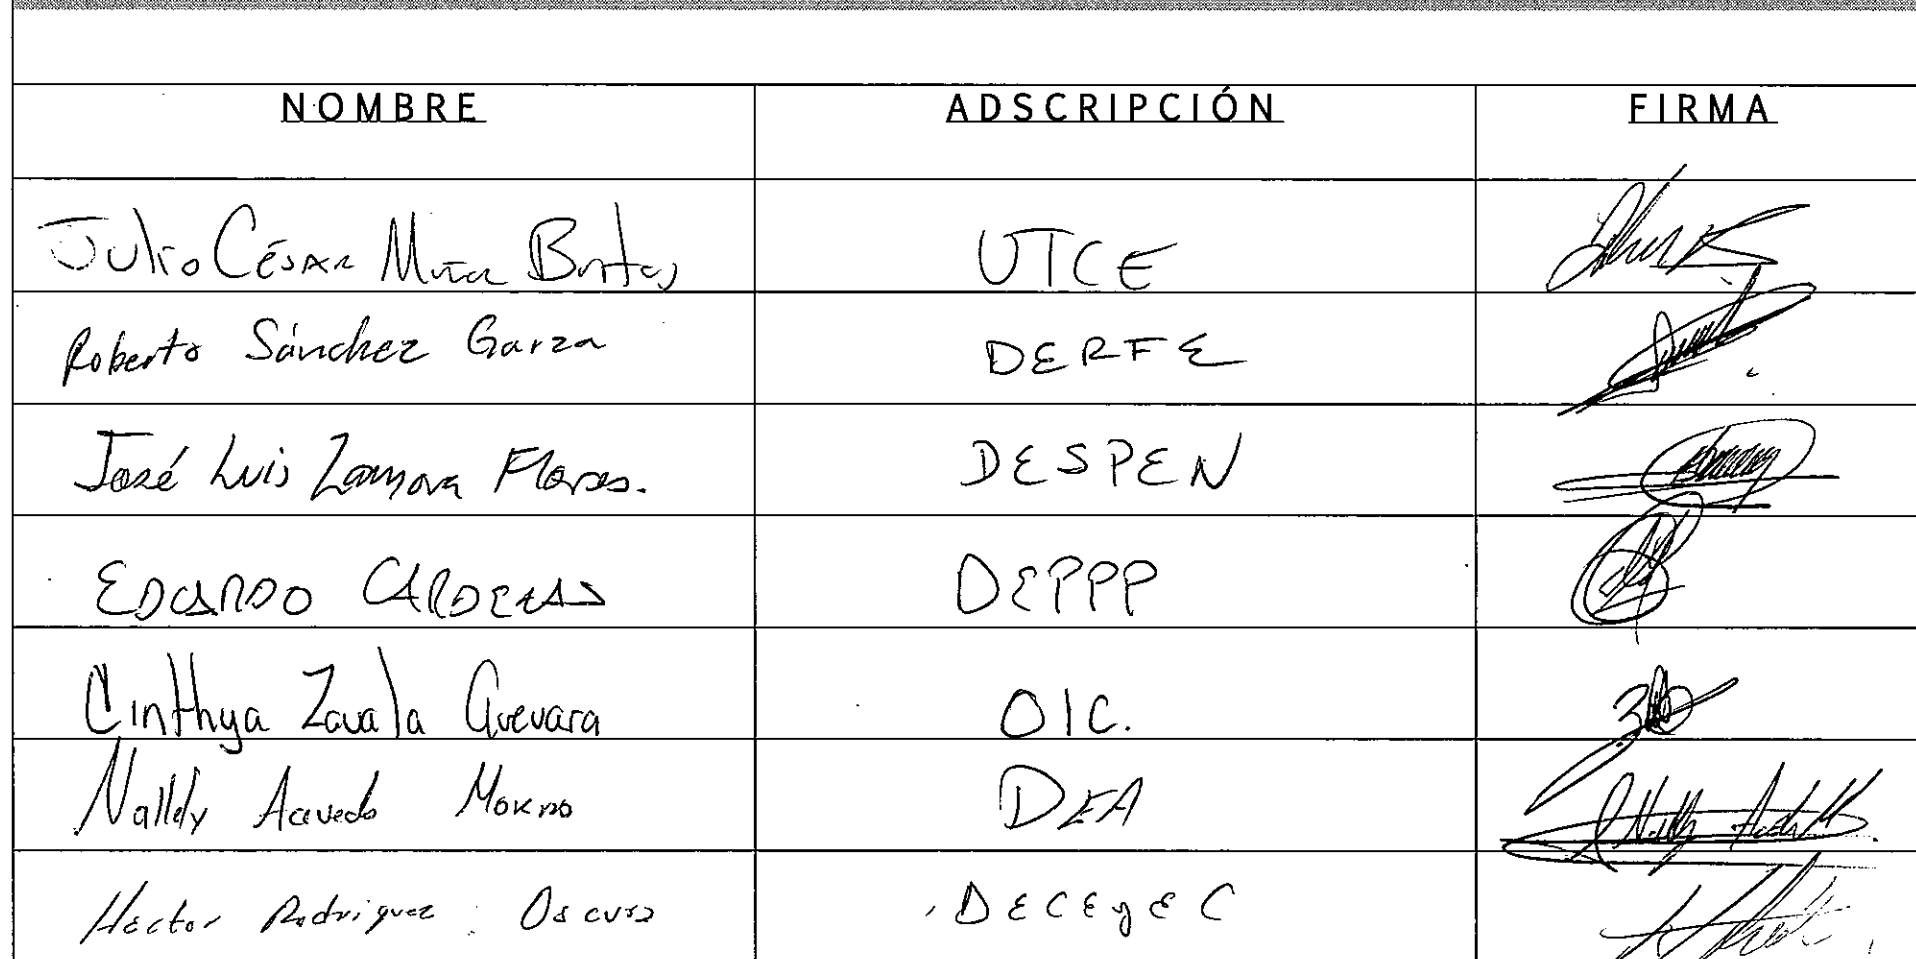 NOMBRE ADSCRIPCIÓN FIRMA
Julio César Bustos UTCE
Roberto Sánchez Garza DERFE
José Luis Zamora Flores. DESPEN
EDUARDO CARDENAS DEPPP
Cinthya Zavala Guevara OIC.
Nallely Acevedo Moreno DEA
Héctor Rodriguez Oscura DECEyEC